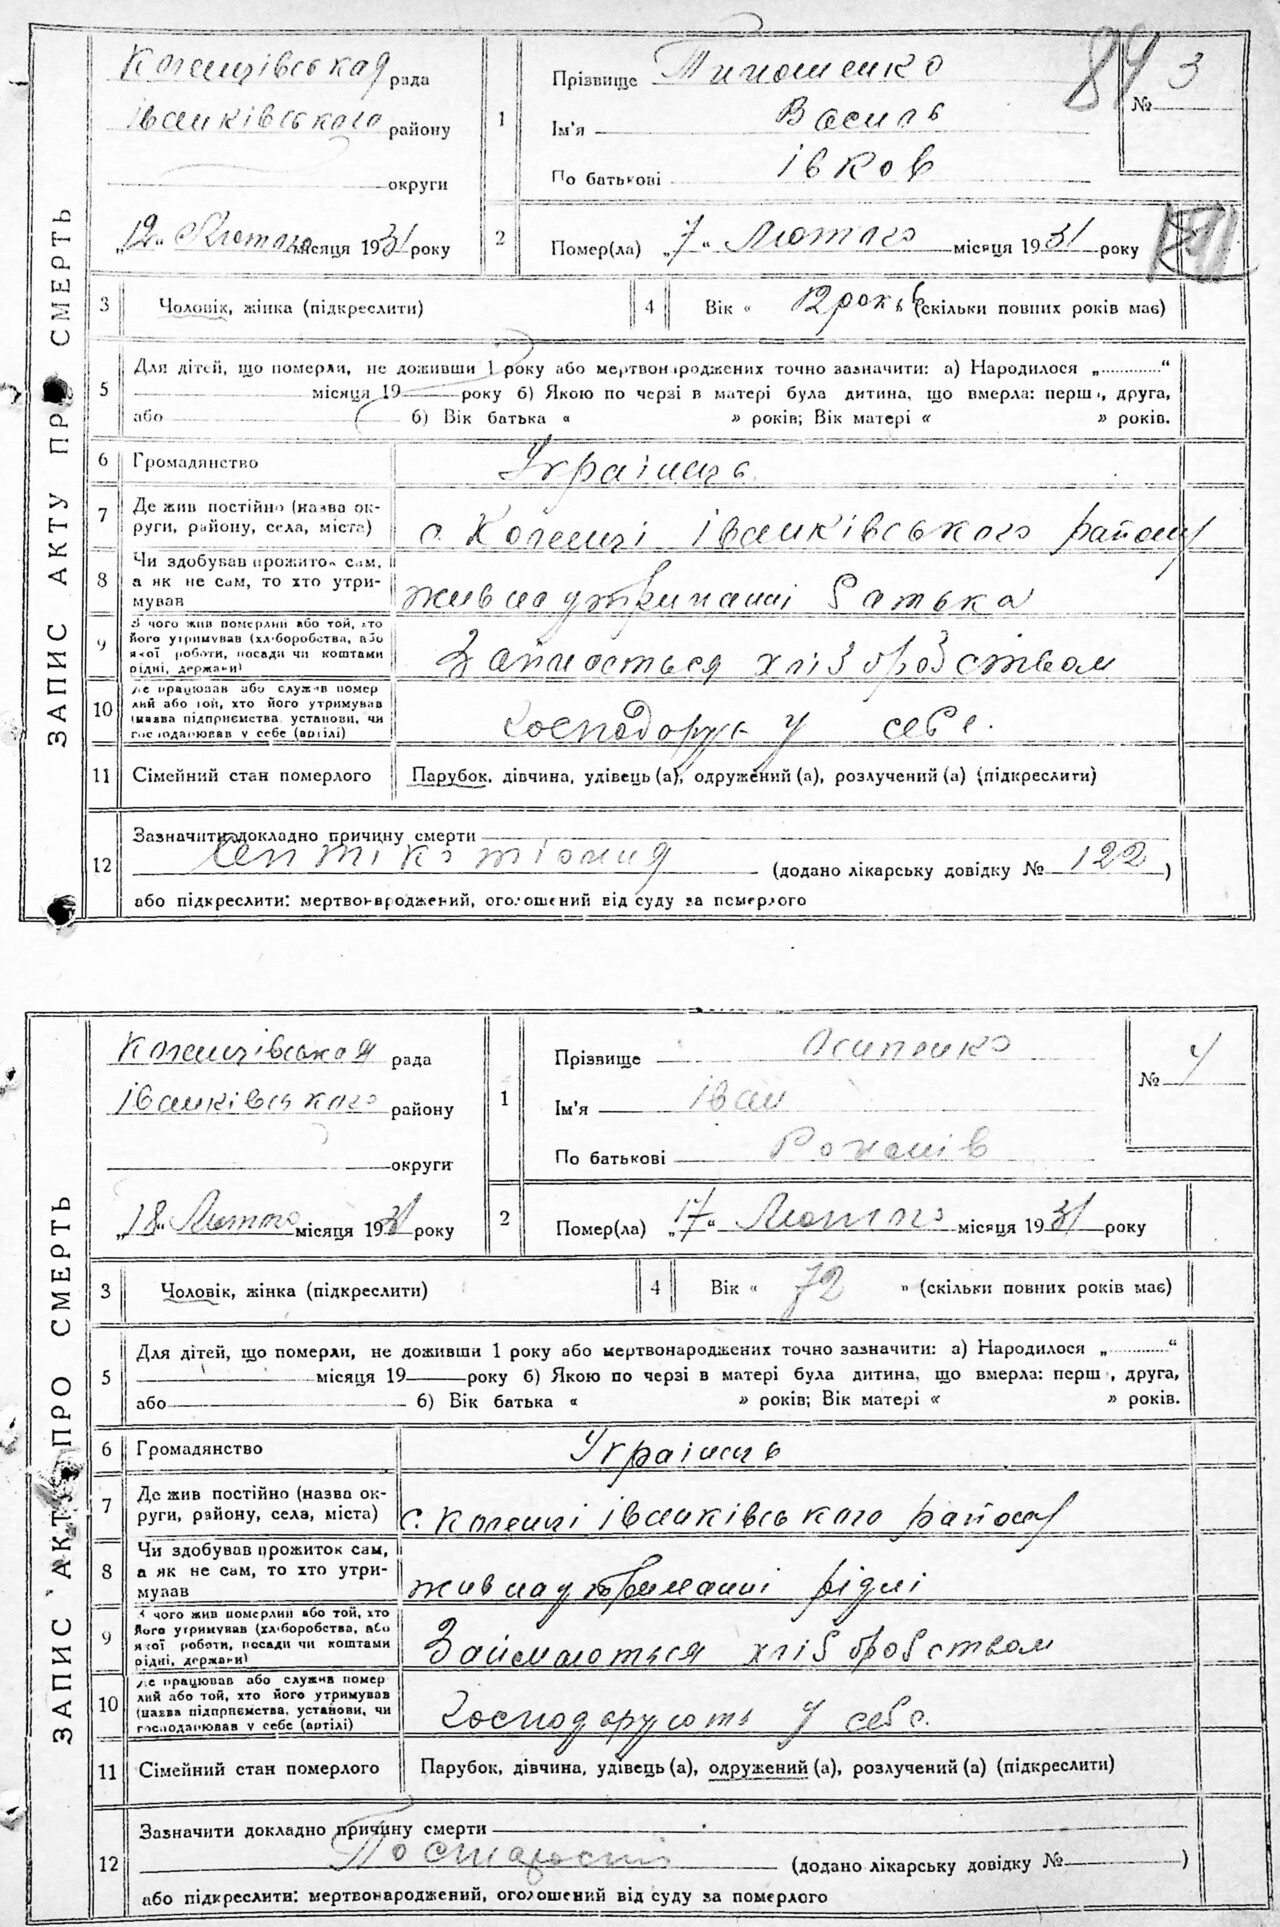 ЗАПИС АКТУ ПРО СМЕРТЬ
Коленцівська рада
Іванківського району
округи
„12“ Лютого місяця 1931 року
1
Прізвище Тимошенко
Ім'я Василь
По батькові Івков
84
№ 3
2
Помер(ла) „7“ Лютого місяця 1931 року
3 Чоловік, жінка (підкреслити)
4 Вік « 12 років (скільки повних років має)
5 Для дітей, що померли, не доживши 1 року або мертвонароджених точно зазначити: а) Народилося „ “
місяця 19 року б) Якою по черзі в матері була дитина, що вмерла: перша, друга,
або б) Вік батька « » років; Вік матері « » років.
6 Громадянство Українець
7 Де жив постійно (назва ок-
руги, району, села, міста) с. Коленці Іванківського району
8 Чи здобував прожиток сам,
а як не сам, то хто утри-
мував жив на утриманні батька
9 З чого жив померлий або той, хто
його утримував (хліборобства, або
якої роботи, посади чи коштами
рідні, держави) Займається хліборобством
10 Де працював або служив помер
лий або той, хто його утримував
(назва підприємства, установи, чи
господарював у себе (артілі) Господарує у себе.
11 Сімейний стан померлого Парубок, дівчина, удівець (а), одружений (а), розлучений (а) (підкреслити)
12 Зазначити докладно причину смерти
(додано лікарську довідку № 122 )
або підкреслити: мертвонароджений, оголошений від суду за померлого
ЗАПИС АКТУ ПРО СМЕРТЬ
Коленцівська рада
Іванківського району
округи
„18“ Лютого місяця 1931 року
1
Прізвище Осипенко
Ім'я Іван
По батькові Романів
№ 4
2
Помер(ла) „17“ Лютого місяця 1931 року
3 Чоловік, жінка (підкреслити)
4 Вік « 72 » (скільки повних років має)
5 Для дітей, що померли, не доживши 1 року або мертвонароджених точно зазначити: а) Народилося „ “
місяця 19 року б) Якою по черзі в матері була дитина, що вмерла: перш , друга,
або б) Вік батька « » років; Вік матері « » років.
6 Громадянство Українець
7 Де жив постійно (назва ок-
руги, району, села, міста) с. Коленці Іванківського району
8 Чи здобував прожиток сам,
а як не сам, то хто утри-
мував жив на утриманні рідні
9 З чого жив померлий або той, хто
його утримував (хліборобства, або
якої роботи, посади чи коштами
рідні, держави) Займаються хліборобством
10 Де працював або служив помер
лий або той, хто його утримував
(назва підприємства, установи, чи
господарював у себе (артілі) Господарують у себе.
11 Сімейний стан померлого Парубок, дівчина, удівець (а), одружений (а), розлучений (а) (підкреслити)
12 Зазначити докладно причину смерти
По старості (додано лікарську довідку № )
або підкреслити: мертвонароджений, оголошений від суду за померлого